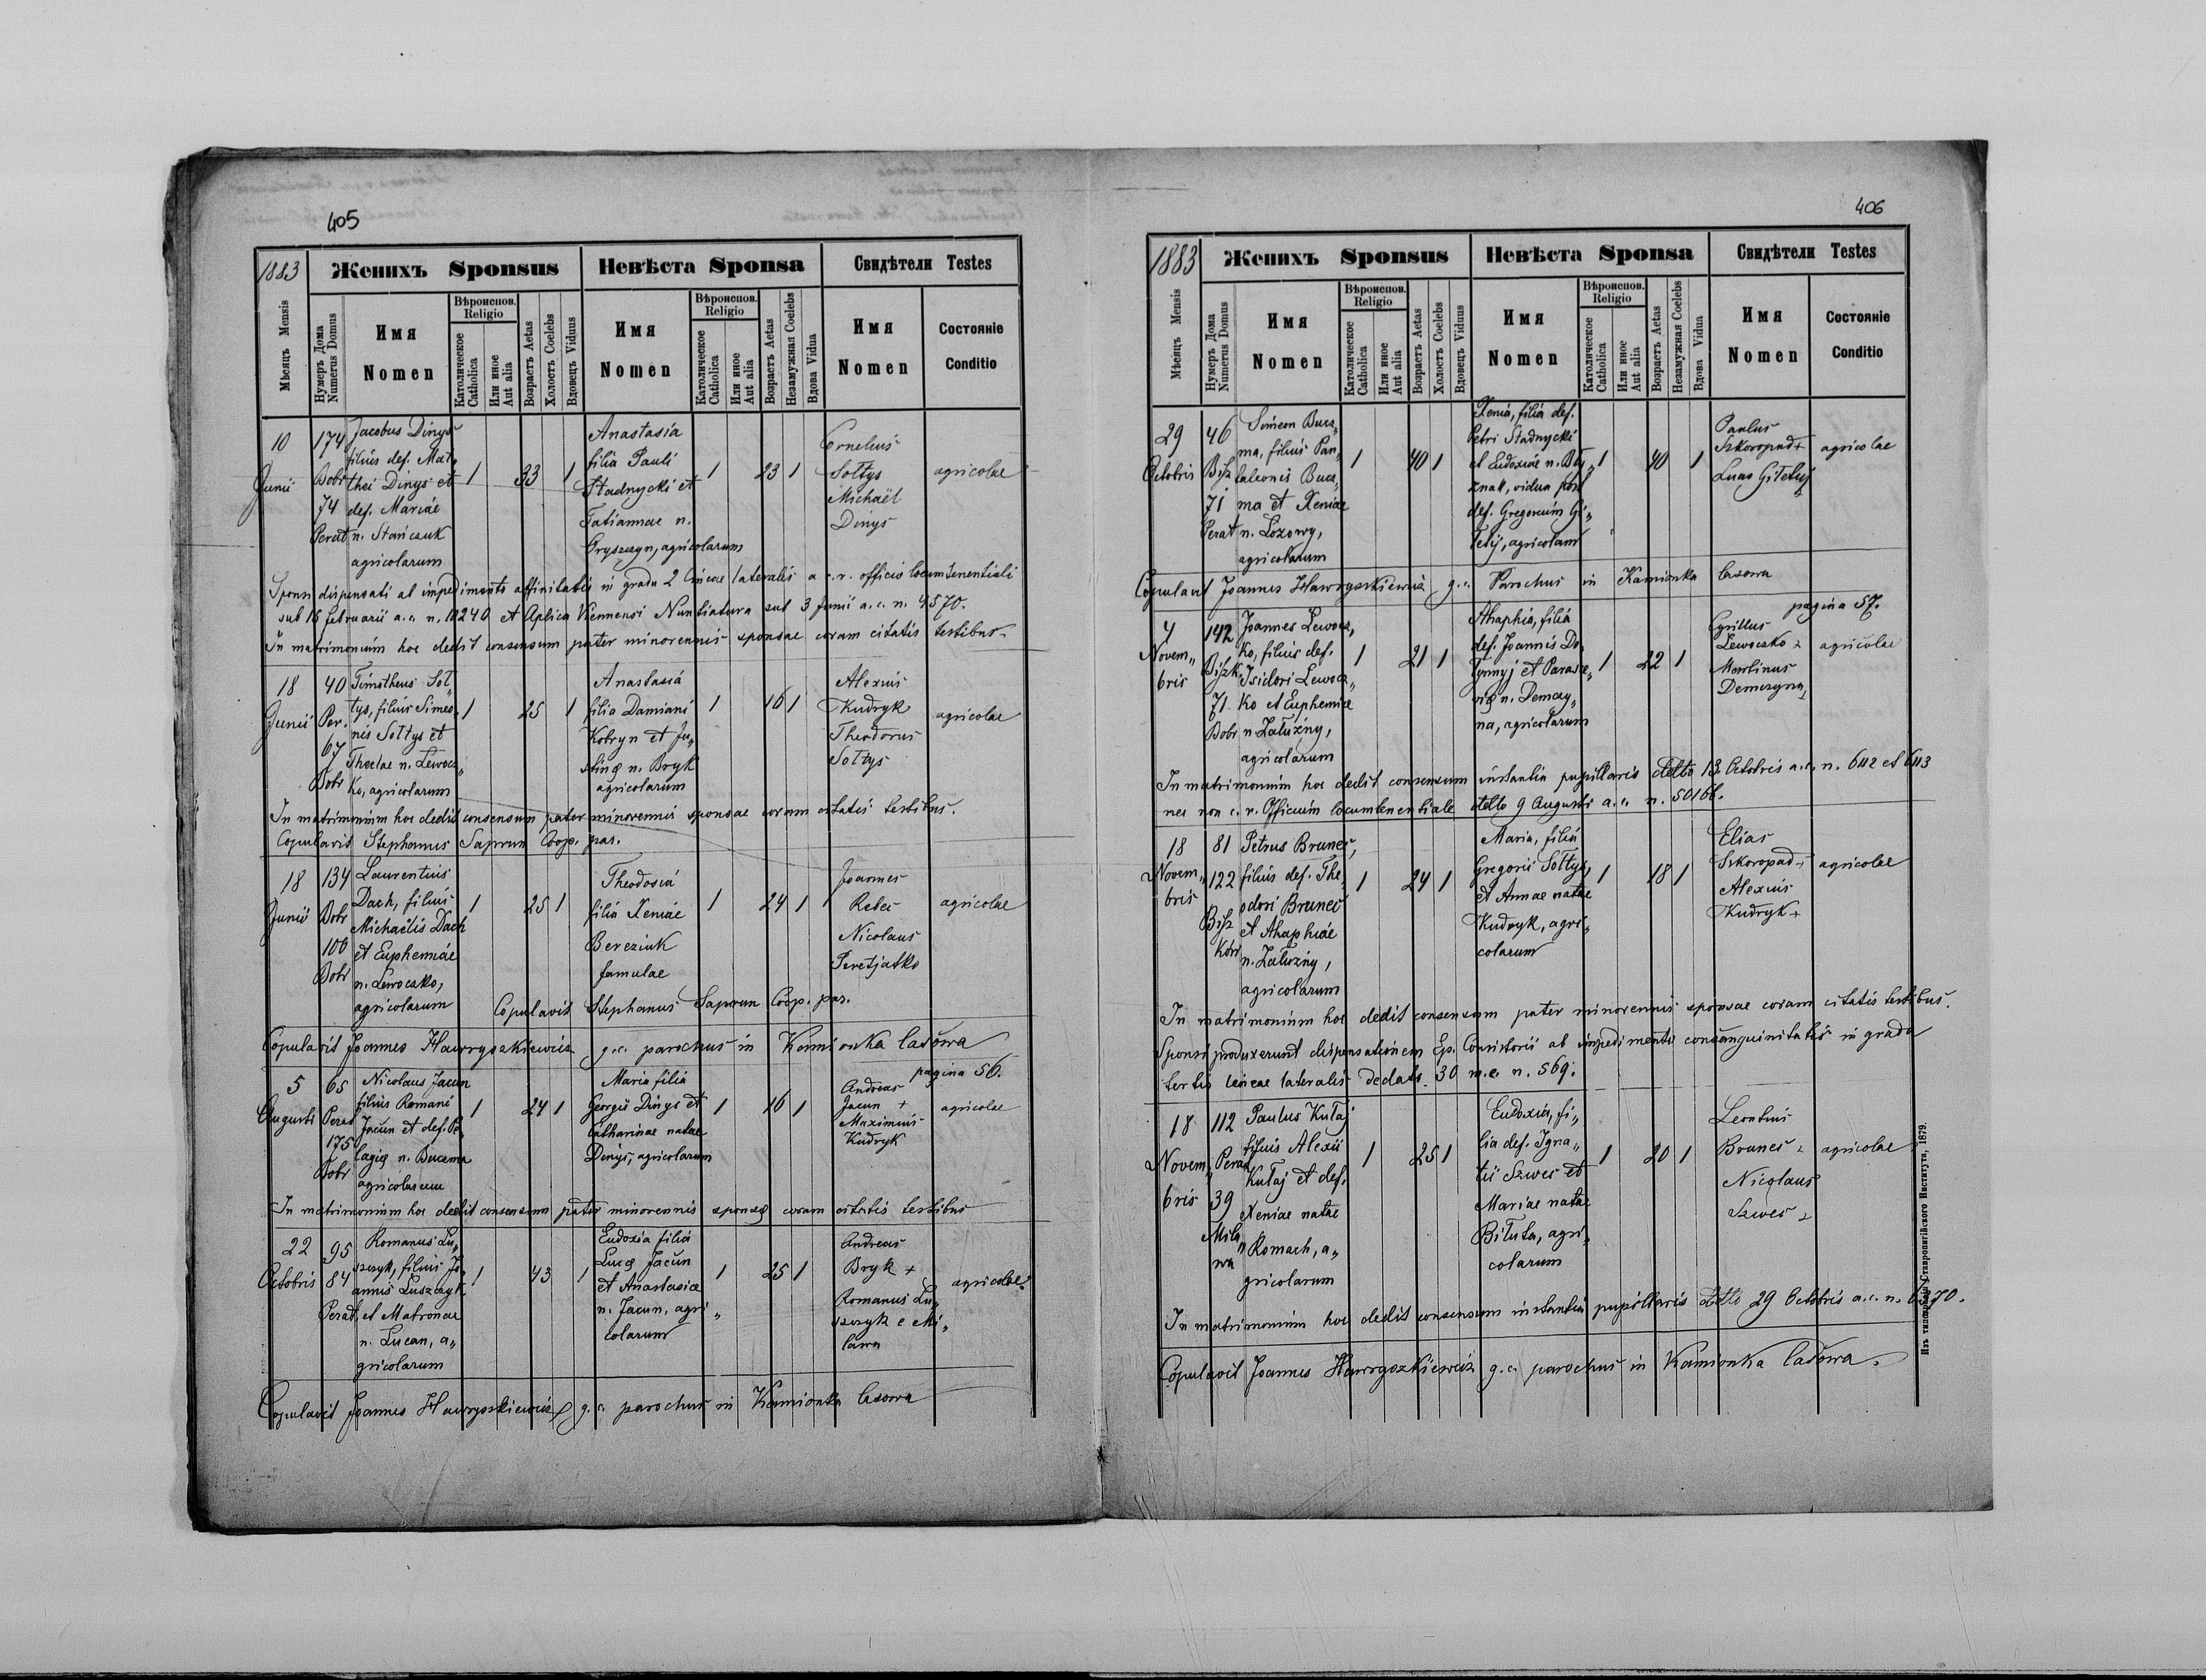 405
1883
Женихъ Sponsus
Невѣста Sponsa
Свидѣтели Testes
Мѣсяцъ Mensis
Нумеръ Дома
Numerus Domus
Имя
Nomen
Вѣроиспов.
Religio
Католическое
Catholica
Или иное
Aut alia
Возрастъ Aetas
Холостъ Coelebs
Вдовецъ Viduus
Имя
Nomen
Вѣроиспов.
Religio
Католическое
Catholica
Или иное
Aut alia
Возрастъ Aetas
Незамужная Coelebs
Вдова Vidua
Имя
Nomen
Состояніе
Conditio
10
Junii
174
Bobr
74
Perat
Jacobus Dinys
filius def. Mat„
thei Dinys et
def. Mariae
n. Stańczuk
agricolarum
1 33 1
Anastasia
filia Pauli
Stadnycki et
Tatiannae n.
Gryszczyn, agricolarum
1 23 1
Cornelius
Sołtys
Michaël
Dinys
agricolae
Sponsi dispensati ab impedimento affinitatis in gradu 2 lineae lateralis a c.r. officio locumtenentiali
sub 15 Februarii a.c. n. 12240 et Aplica Viennensi Nuntiatura sub 3 Junii a.c. n. 4570.
In matrimonium hoc dedit consensum pater minorennis sponsae coram citatis testibus
18
Junii
40
Per.
67
Bobr
Timotheus Soł„
tys, filius Simeo„
nis Sołtys et
Theclae n. Lewocz„
ko, agricolarum
1 25 1
Anastasia
filia Damiani
Kobryn et Ju„
stinę n. Bryk
agricolarum
1 16 1
Alexius
Kudryk
Theodorus
Sołtys
agricolae
In matrimonium hoc dedit consensum pater minorennis sponsae coram citatis testibus.
Copulavit Stephanus Saprun Coop. par.
18
Junii
134
Bobr
100
Bobr
Laurentius
Dach, filius
Michaëlis Dach
et Euphemiae
n. Lewoczko,
agricolarum
1 25 1
Theodosia
filia Xeniae
Bereziuk
famulae
1 24 1
Joannes
Rebeć
Nicolaus
Peretjatko
agricolae
Copulavit Stephanus Saprun Coop. par.
Copulavit Joannes Hawryszkiewicz g.c. parochus in Kamionka lasowa
pagina 56.
5
Augusti
65
Perat
175
Bobr
Nicolaus Jacun
filius Romani
Jacun et def. Pe„
lagię n. Bucema
agricolarum
1 24 1
Maria filia
Georgii Dinys et
Catharinae natae
Dinys, agricolarum
1 16 1
Andreas
Jacun +
Maximus
Kudryk
agricolae
In matrimonium hoc dedit consensum pater minorennis sponsę coram citatis testibus
22
Octobris
95
84
Perat
Romanus Łu„
szczyk, filius Jo„
annis Łuszczyk
et Matronae
n. Lucan, a„
gricolarum
1 43 1
Eudoxia filia
Lucę Jacun
et Anastasiae
n. Jacun, agri„
colarum
1 25 1
Andreas
Bryk +
Romanus Łu„
szczyk e Mi„
lawa
agricolae
Copulavit Joannes Hawryszkiewicz g.c. parochus in Kamionka lasowa
406
1883
Женихъ Sponsus
Невѣста Sponsa
Свидѣтели Testes
Мѣсяцъ Mensis
Нумеръ Дома
Numerus Domus
Имя
Nomen
Вѣроиспов.
Religio
Католическое
Catholica
Или иное
Aut alia
Возрастъ Aetas
Холостъ Coelebs
Вдовецъ Viduus
Имя
Nomen
Вѣроиспов.
Religio
Католическое
Catholica
Или иное
Aut alia
Возрастъ Aetas
Незамужная Coelebs
Вдова Vidua
Имя
Nomen
Состояніе
Conditio
29
Octobris
46
Bisz
71
Perat
Simeon Buce„
ma, filius Pan„
taleonis Buce„
ma et Xeniae
n. Łozowy,
agricolarum
1 40 1
Xenia, filia def.
Petri Stadnycki
et Eudoxiae n.
vidua post
def. Gregorium Gi„
tetij, agricolam
1 40 1
Paulus
Szkoropad +
Lucas Gitetij
agricolae
Copulavit Joannes Hawryszkiewicz g.c. Parochus in Kamionka lasowa
pagina 57.
4
Novem„
bris
142
Biszk
71
Bobr
Joannes Lewocz„
ko, filius def.
Isidori Lewocz„
ko et Euphemiae
n. Załużny,
agricolarum
1 21 1
Ahaphia, filia
def. Joannis Do„
tynnyj et Parasce„
vię n. Demczy„
na, agricolarum
1 22 1
Cyrillus
Lewoczko +
Martinus
Demczyna
agricolae
In matrimonium hoc dedit consensum instantia pupillaris ddtto 13. Octobris a.c. n. 6112 et 6113
nec non c.r. Officium locumtenentiale ddtto 9 Augusti a.c. n. 50166.
18
Novem„
bris
81
122
Bisz
Kob
Petrus Bruneć,
filius def. The„
odori Bruneć
et Ahaphiae
n. Załużny,
agricolarum
1 24 1
Maria, filia
Gregorii Sołtys,
et Annae natae
Kudryk, agri„
colarum
1 18 1
Elias
Szkoropad +
Alexius
Kudryk +
agricolae
In matrimonium hoc dedit consensum pater minorennis sponsae coram citatis testibus.
Sponsi produxerunt dispensationem Ep. Consistorii ab impedimento consanguinitatis in gradu
tertio lineae lateralis dedato 30 m.c. n. 569.
18
Novem„
bris
112
Perat
39
Mila„
wa
Paulus Kułaj
filius Alexii
Kułaj et def.
Xeniae natae
Romach, a„
gricolarum
1 25 1
Eudoxia, fi„
lia def. Igna„
tii Szwec et
Mariae natae
Biłuta, agri„
colarum
1 20 1
Leontius
Bruneć +
Nicolaus
Szwec +
agricolae
In matrimonium hoc dedit consensum instantia pupillaris ddtto 29 Octobris a.c. n.
Copulavit Joannes Hawryszkiewicz g.c. parochus in Kamionka lasowa.
Изъ типографіи Ставропигійского Института, 1879.